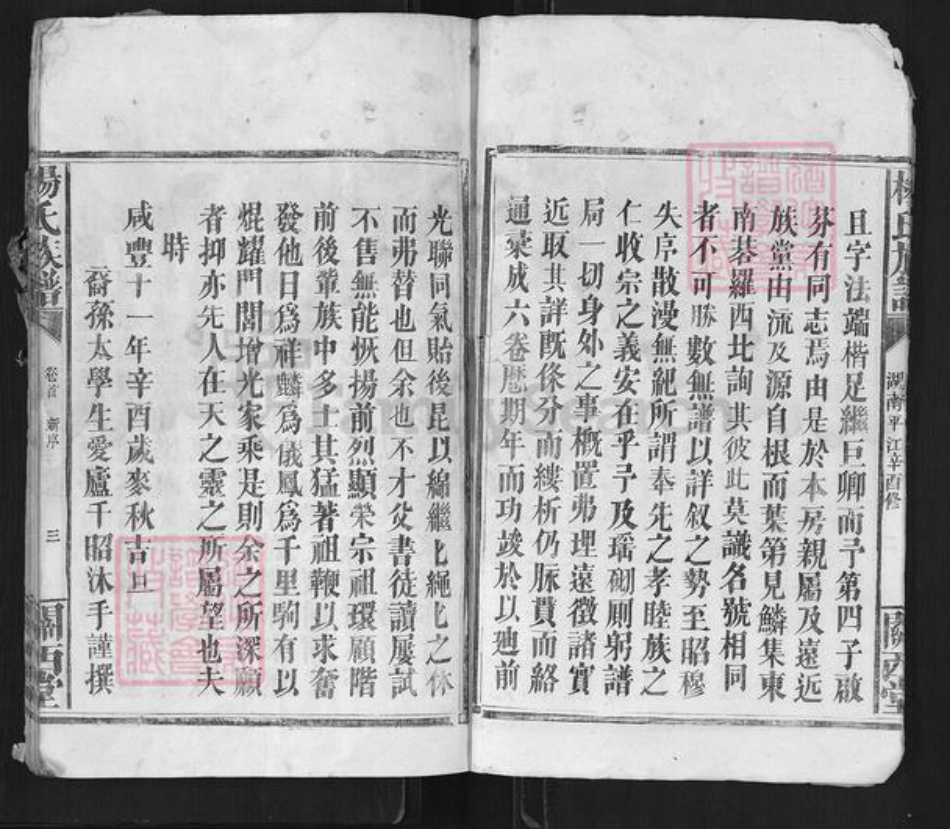 楊氏族譜
湖南平江辛酉修
關西堂
且字法端楷足繼巨卿而予第四子啟
芬有同志焉由是於本房親屬及遠近
族黨由流及源自根而葉第見鱗集東
南棊羅西北詢其彼此莫識名號相同
者不可勝數無譜以詳叙之勢至昭穆
失序散漫無紀所謂奉先之孝睦族之
仁收宗之義安在乎予及瑶砌厠躬譜
局一切身外之事槪置弗理遠徵諸實
近取其詳旣條分而縷析仍脉貫而絡
通彚成六卷歴期年而功竣於以廸前
光聯同氣貽後昆以綿繼匕繩匕之休
而弗替也但余也不才父書徒讀屢試
不售無能恢揚前烈顯榮宗祖環顧階
前後輩族中多士其猛著祖鞭以求奮
發他日爲祥麟爲儀鳳爲千里駒有以
焜耀門閭增光家乘是則余之所深願
者抑亦先人在天之靈之所屬望也夫
時
咸豐十一年辛酉歲麥秋吉旦
裔孫太學生愛廬千昭沐手謹撰
楊氏族譜
卷首
新序
三
關西堂